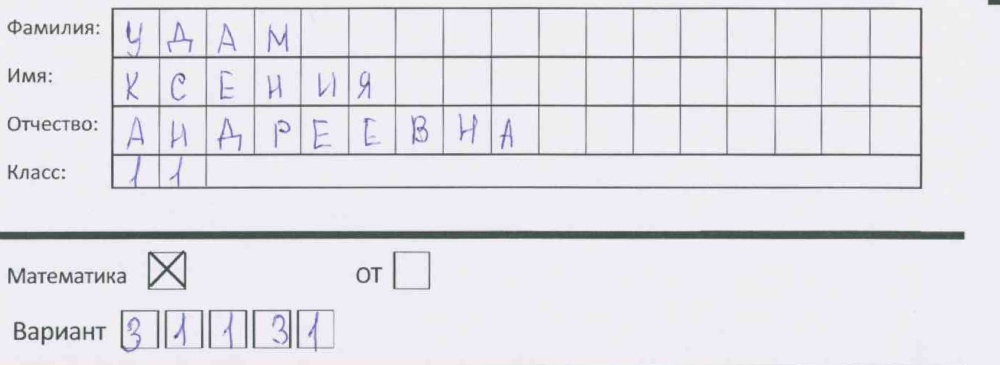 Фамилия: УДАМ
Имя: КСЕНИЯ
Отчество: АНДРЕЕВНА
Класс: 11
Математика ОТ
Вариант 31131